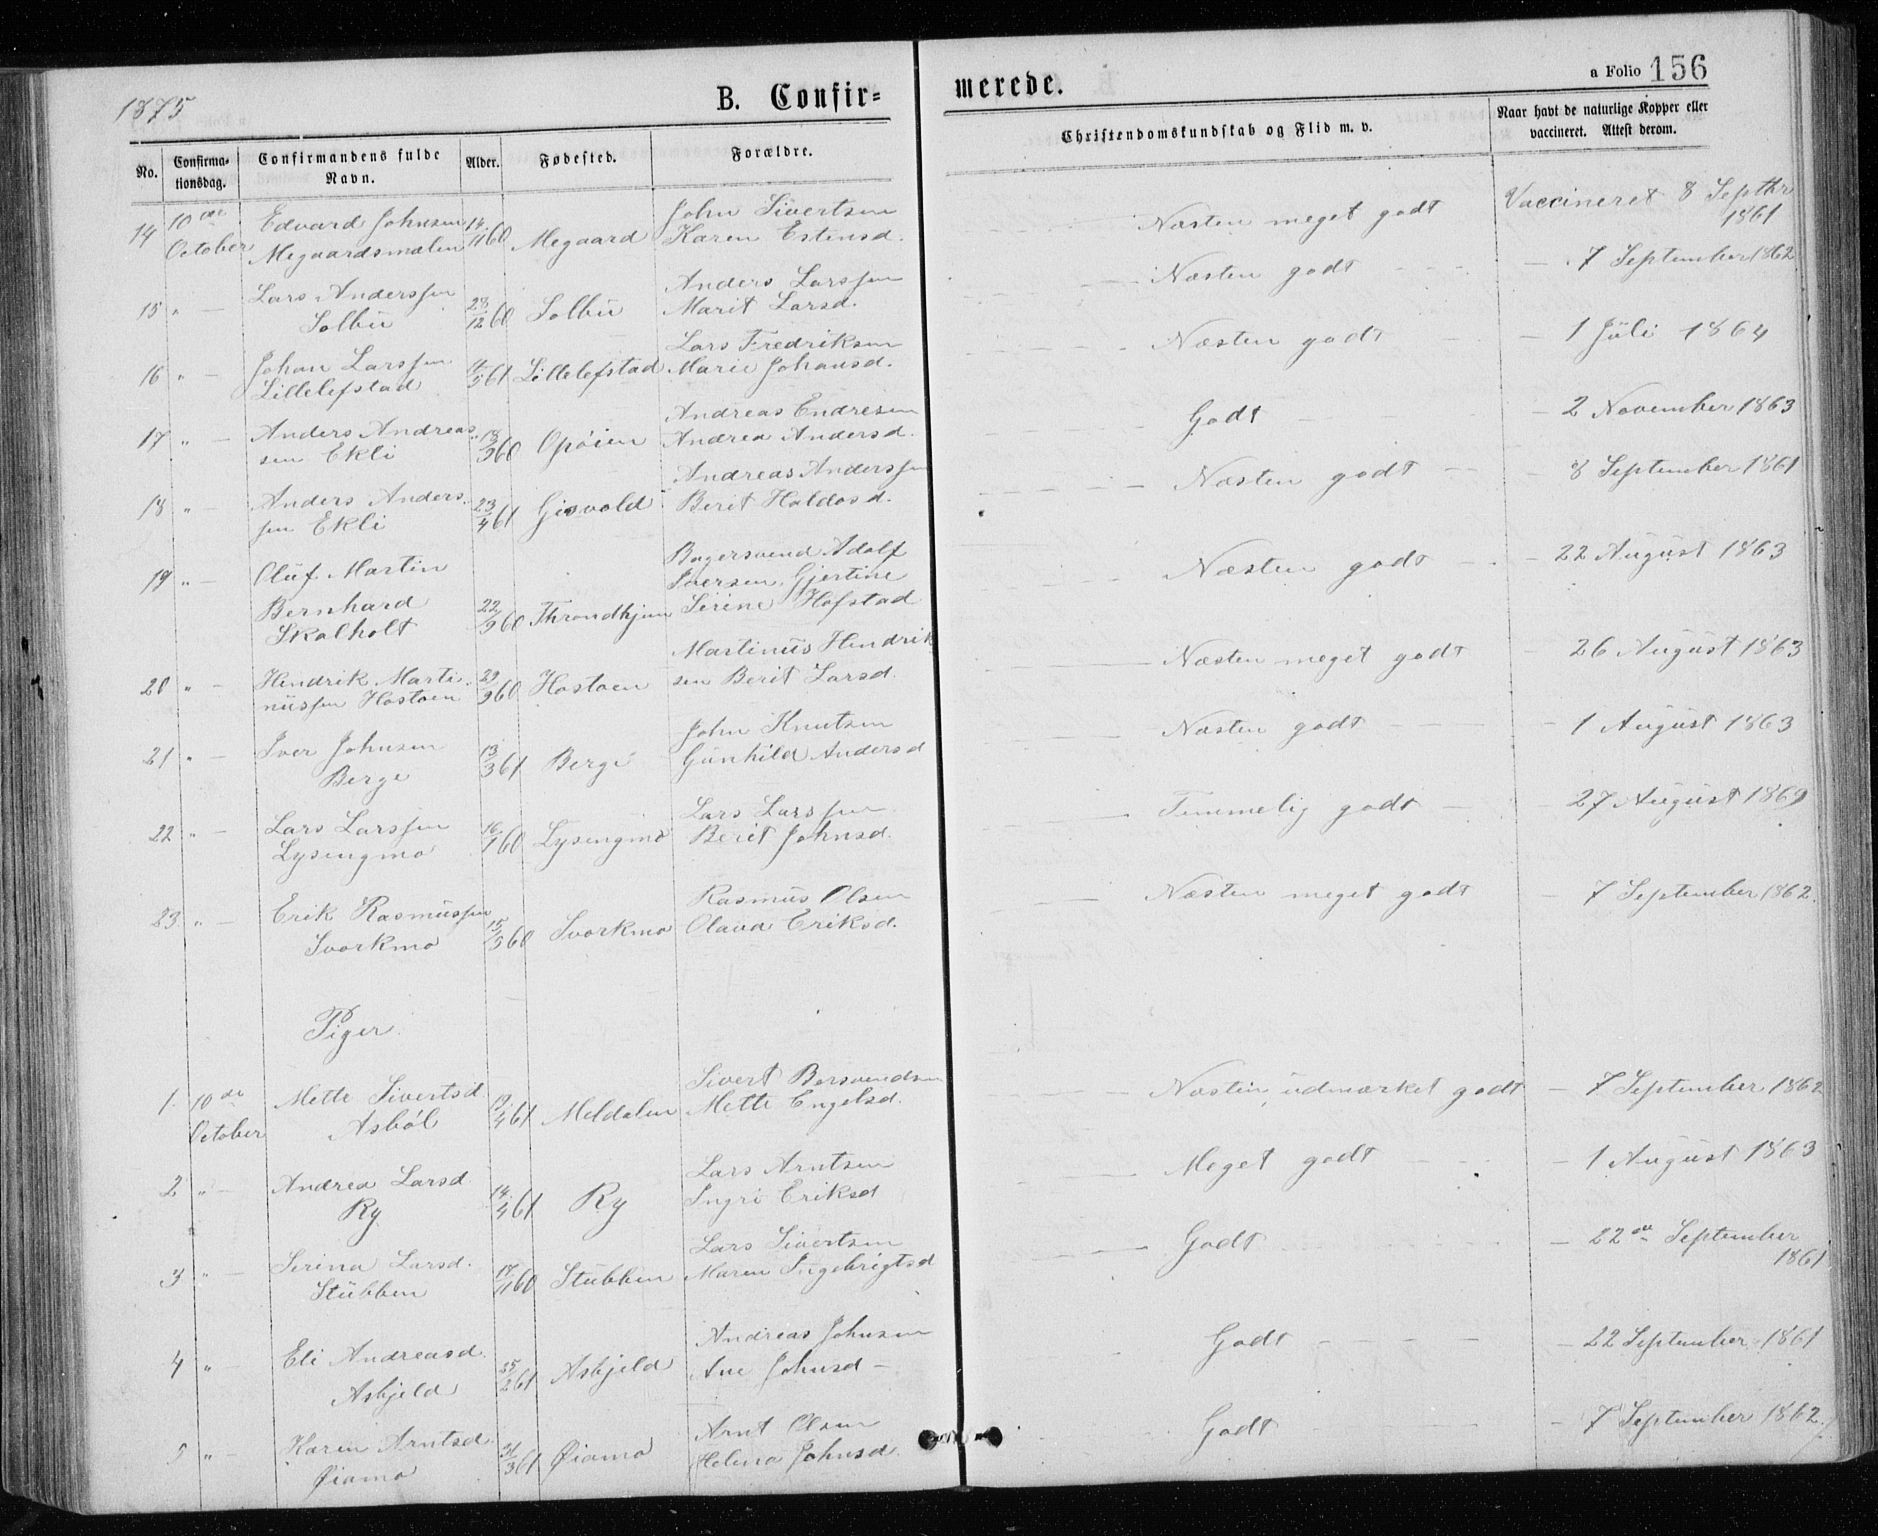 1875
B. Confir=
merede.
a Folio 156
No.
Confirma-
tionsdag.
Confirmandens fulde
Navn.
Alder.
Fødested.
Forældre.
Christendomskundskab og Flid m. v.
Naar havt de naturlige Kopper eller
vaccineret. Attest derom.
14 10de Edvard Johnsen 14/11 60 John Sivertsen Næsten meget godt Vaccineret 8 Septbr
October Megaardsmælen Megaard Karen Estensd. 1861
Anders Larssen Næsten godt - 7 September 1862
15 " - Lars Anderssen 28/12 60 Solbu Marit Larsd.
Solbu
Lars Fredriksen Næsten godt - 1 Juli 1864
16 " - Johan Larssen 61 Lillelefstad Marie Johansd.
Lillelefstad
Andreas Endresen Godt - 2 November 1863
17 " - Anders Andreas 18/3 60 Opøien Andrea Andersd.
sen Ekli
Andreas Anderssen Næsten godt - 8 September 1861
18 " - Anders Anders 23/4 61 Gisvold Berit Haldosd.
sen Ekli
Bagersvend Adolf
19 " - Oluf Martin Iversen, Gjertine Næsten godt - 22 August 1863
Bernhard 22/9 60 Throndhjem Serine Hofstad
Skalholt
Martinus Hendrik Næsten meget godt - 26 August 1863
20 " - Hendrik Marti 29/9 60 Hostoen sen Berit Larsd.
nussen Hostoen
John Knutsen Næsten godt - 1 August 1863
21 " - Iver Johnsen 13/3 61 Berge Gunhild Andersd
Berge
Lars Larssen Temmelig godt - 27 August 1869
22 " - Lars Larssen 16/1 60 Lysengmo Berit Johnsd.
Lysengmo
Rasmus Olsen Næsten meget godt - 7 September 1862.
23. " - Erik Rasmussen 15/3 60 Svorkmo Olava Eriksd.
Svorkmo
Piger.
Sivert Bersvendsen
1. 10de Mette Sivertsd 19/4 61 Meldalen Mette Engelsd. Næsten udmærket godt - 7 September 1862
October Asbøl
Lars Arntsen Meget godt - 1 August 1863
2 " - Andrea Larsd 14/4 61 Ry Ingri Eriksd
Ry
Lars Sivertsen Godt - 22de September
3 " - Serina Larsd. 17/11 60 Stubben Maren Ingebrigtsd 1861
Stubben
Andreas Johnsen Godt - 22 September 1861
4 " - Eli Andreasd. 25/2 61 Asbjeld Ane Johnsd -
Asbjeld
Arnt Olsen Godt - 7 September 1862.
5 " Karen Arntsd. 31/3 61 Øiamo Helena Johnsd.
Øiamo